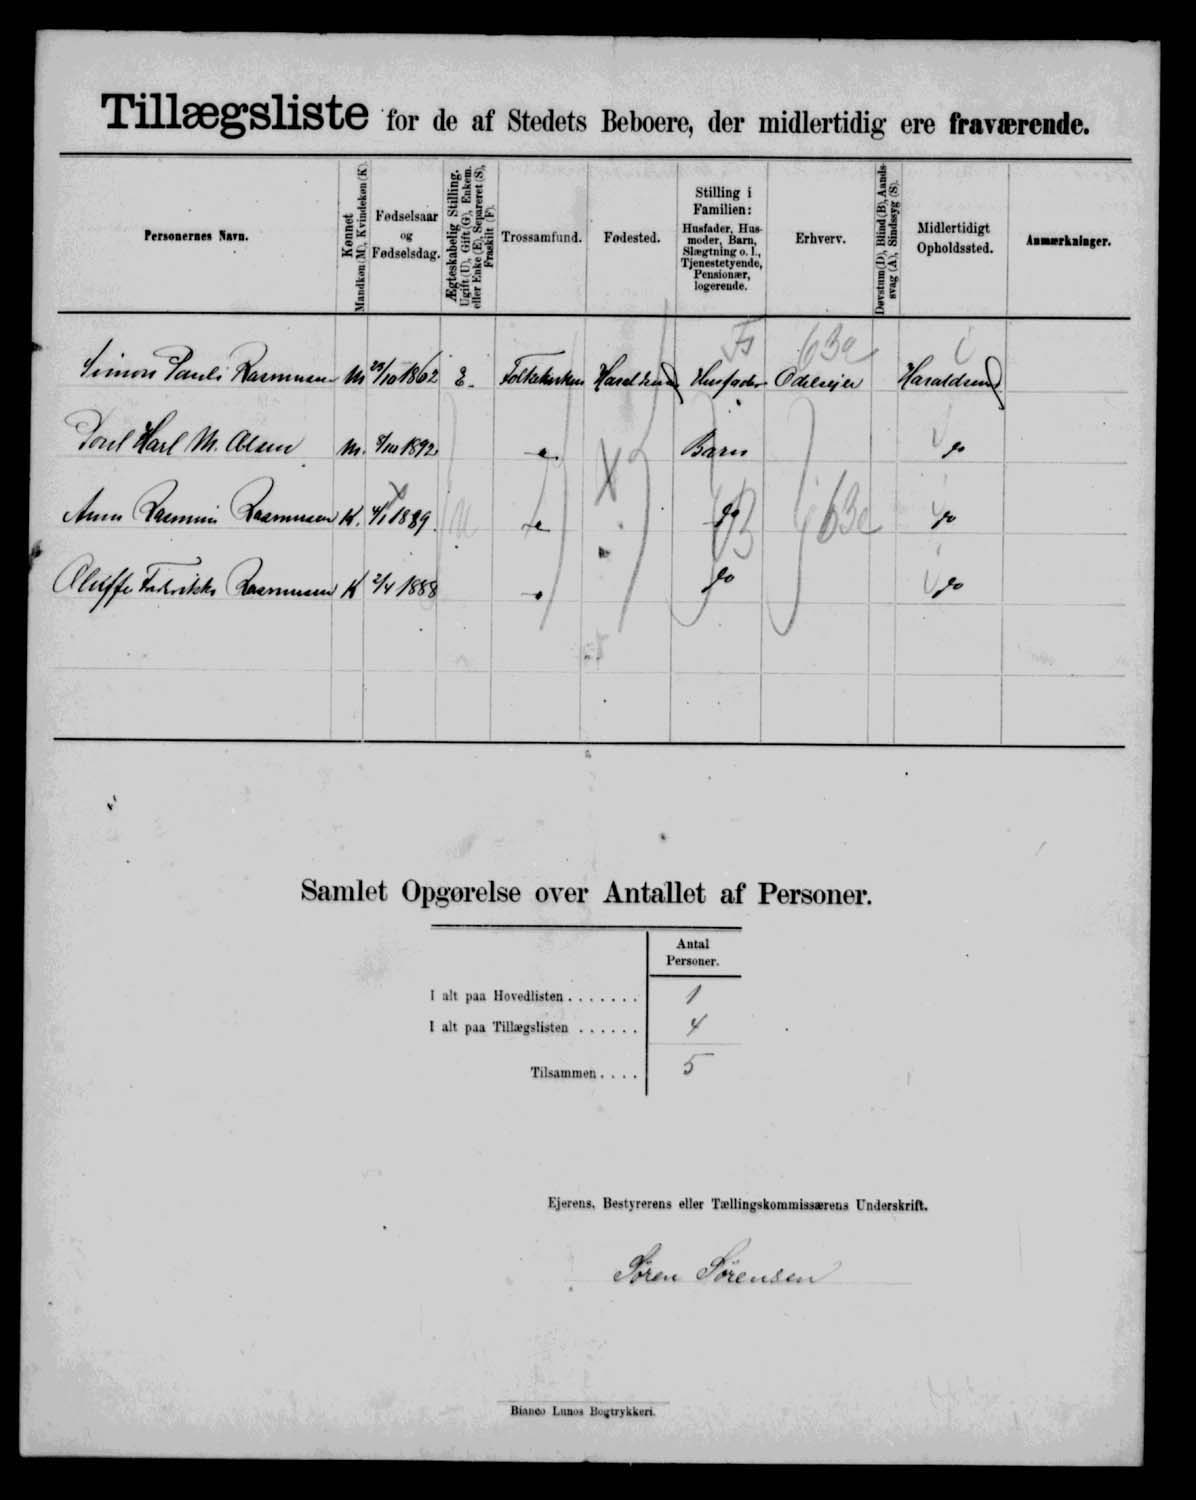 Tillægsliste for de af Stedets Beboere, der midlertidig ere fraværende.
Personernes Navn.
Kønnet
Mandkøn (M), Kvindekøn (K).
Fødselsaar
og
Fødselsdag.
Ægteskabelig Stilling.
Ugift (U), Gift (G), Enkem.
eller Enke (E), Separeret (S),
Fraskilt (F).
Trossamfund.
Fødested.
Stilling i
Familien:
Husfader, Hus-
moder, Barn,
Slægtning o. l.,
Tjenestetyende,
Pensionær,
logerende.
Erhverv.
Døvstum (D), Blind (B), Aands-
svag (A), Sindssyg (S).
Midlertidigt
Opholdssted.
Anmærkninger.
Fs 63a
Simon Pauli Rasmussen M 1862 E. Folkekirken Haraldsund Husfader Odelsejer Haraldsund
M. Olsen M. 1892 Barn do
Anna Rasmussen K. 4/1 1889 do do
U B 63a
Rasmussen K 2/4 1888 do do
Samlet Opgørelse over Antallet af Personer.
Antal
Personer.
I alt paa Hovedlisten . . . . . . . 1
I alt paa Tillægslisten . . . . . . 4
Tilsammen . . . . 5
Ejerens, Bestyrerens eller Tællingskommissærens Underskrift.
Søren Sørensen
Bianco Lunos Bogtrykkeri.